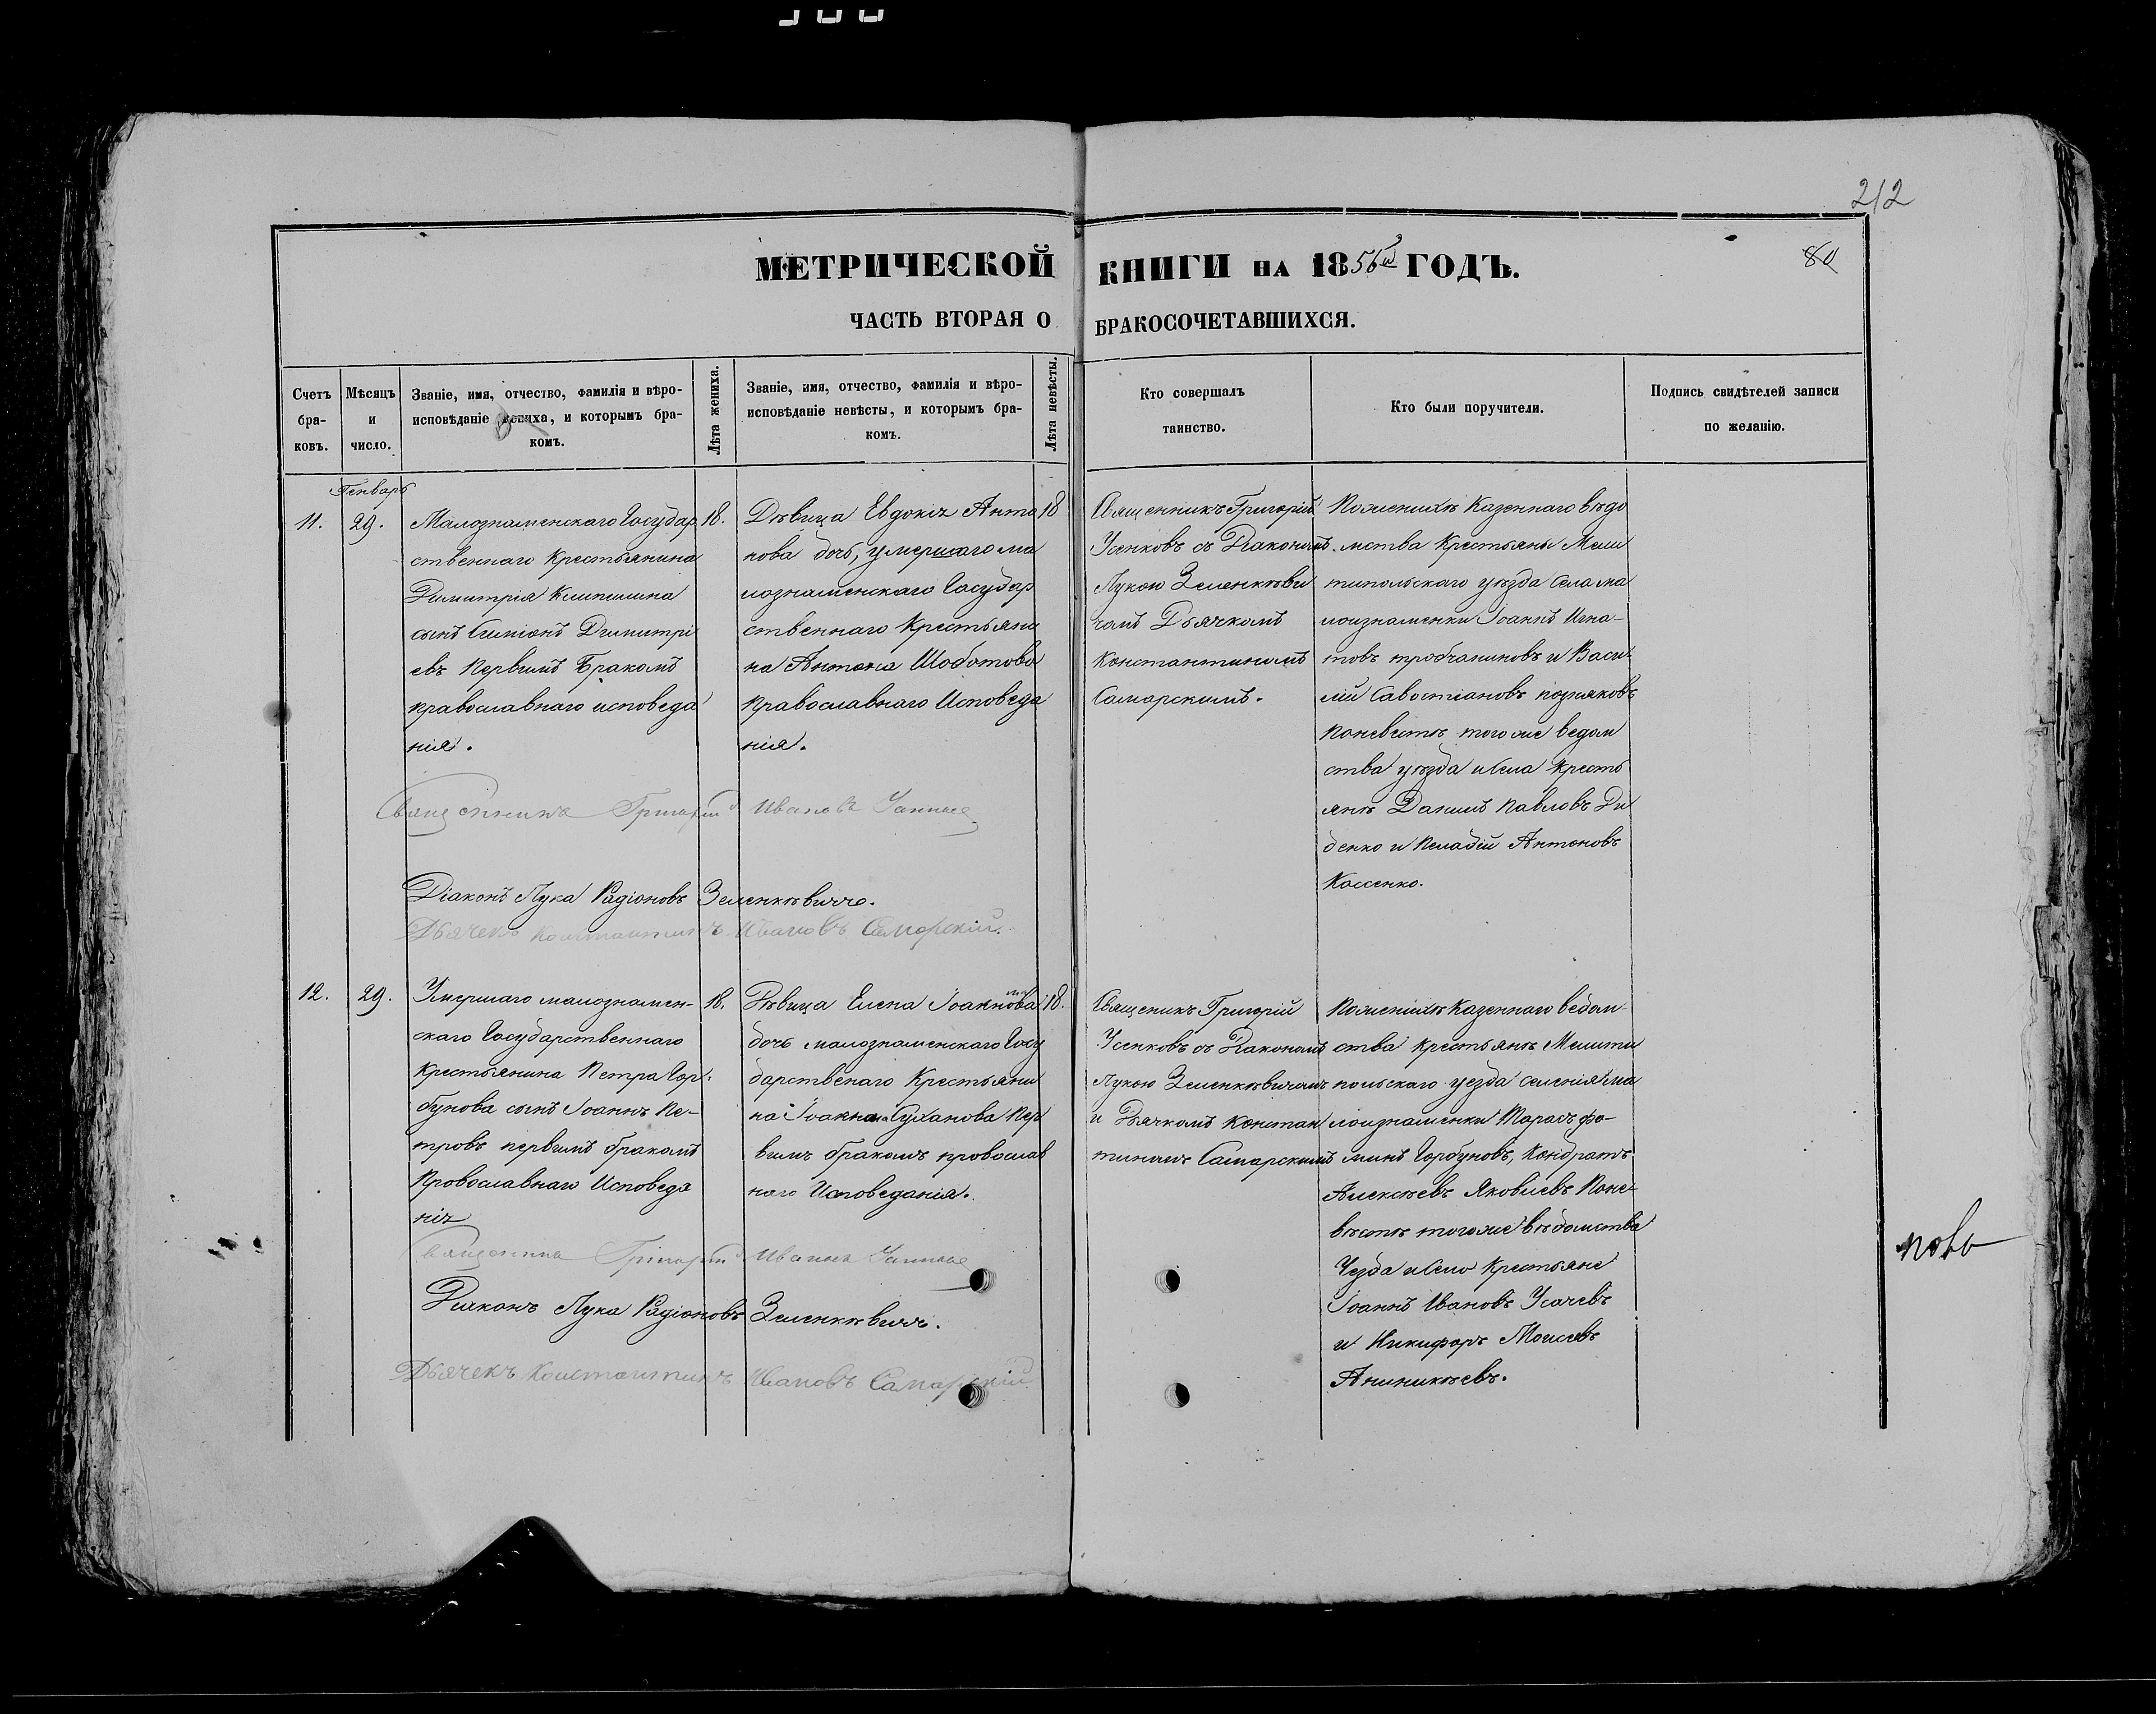 212
МЕТРИЧЕСКОЙ КНИГИ НА 1856й ГОДЪ.
80
ЧАСТЬ ВТОРАЯ О БРАКОСОЧЕТАВШИХСЯ.
Счетъ бра-ковъ.
Мѣсяцъ и число.
Званіе, имя, отчество, фамилія и вѣро-
исповѣданіе жениха, и которымъ бра-
комъ.
Лѣта жениха.
Званіе, имя, отчество, фамилія и вѣро-
исповѣданіе невѣсты, и которымъ бра-
комъ.
Лѣта невѣсты.
Кто совершалъ
таинство.
Кто были поручители.
Подпись свидѣтелей записи
по желанію.
Генварь
11.
29.
Малознаменскаго Государ
ственнаго крестьянина
Димитрія
сынъ Симіонъ Димитрі
евъ первымъ бракомъ
православнаго исповеда
нія.
18.
Дѣвица Евдокія Анто
нова дочь, умершаго ма
лознаменскаго Государ
ственнаго крестьяни
на Антона Шоботова
православнаго Исповеда
нія.
18
Священникъ Григорій
Усенковъ съ Діакономъ
Лукою Зеленкѣви
чомъ Дьячкомъ
Константиномъ
Самарскимъ.
По женихѣ казеннаго вѣдо
мства крестьяны Мели
топольскаго уѣзда села ма
лоизнаменки Іоаннъ Игна-
товъ и Васи-
лій Савостіановъ
по невѣстѣ того же ведом
ства уѣзда и села кресть
янѣ Данилъ Павловъ Ди
денко и Антоновъ
Косенко.
Священникъ Григорій Ивановъ
Діаконъ Лука Радіоновъ Зеленкѣвичъ.
Дьячекъ Константинъ Ивановъ Самарскій.
12.
29.
Умершаго малознамен-
скаго Государственнаго
крестьянина Петра Гор-
бунова сынъ Іоаннъ Пе-
тровъ первымъ бракомъ
Провославнаго Исповеда
нія
18.
Дѣвица Елена Іоакнова
дочь малознаменскаго Госу
дарственаго Крестьяни
на Суханова пер
вымъ бракомъ провослав
наго Исповеданія.
18.
Священикъ Григорій
Усенковъ съ Діакономъ
Лукою Зеленкѣвичомъ
и Дьячкомъ Констан
тиномъ Самарскимъ
По женихѣ казеннаго ведом-
ства крестьянѣ Мелити
польскаго уезда селенія ма
лоизнаменки Тарасъ фо-
минъ Горбуновъ, Кондратъ
Алексѣевъ Яковлевъ Поне-
вѣстѣ того же вѣдомства
Уезда и Село Крестьяне
Іоаннъ Ивановъ Усачевъ
и Никифоръ Моисѣевъ
Аниникѣевъ.
Священникъ Григорій Ивановъ
Діаконъ Лука Радіоновъ Зеленкѣвичъ.
Дьячекъ Константинъ Ивановъ Самарскій.